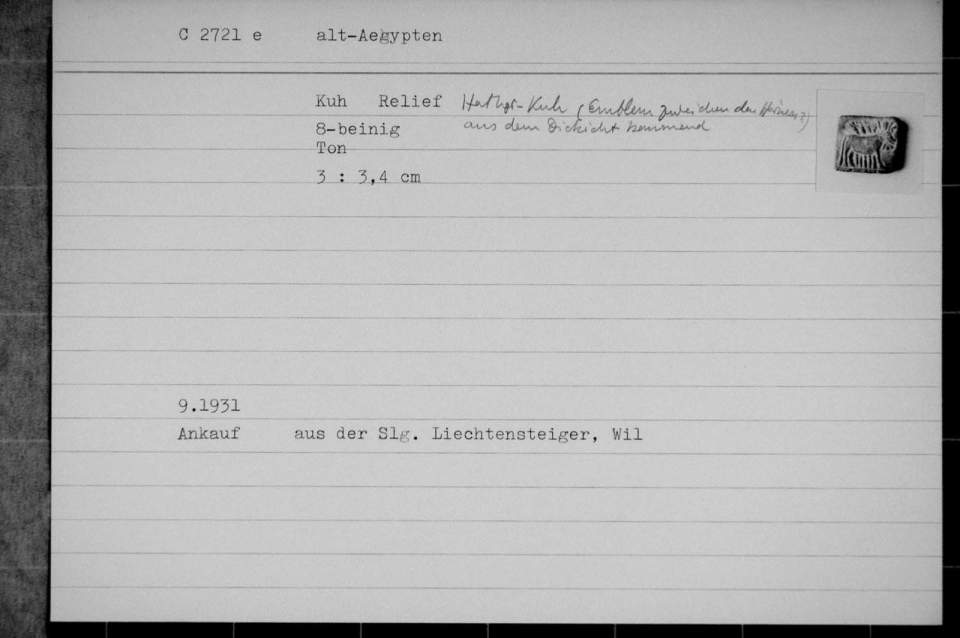 C 2721 e alt-Aegypten
Kuh Relief Hathor-Kuh (Emblem zwischen den Hörnern?)
8-beinig aus dem Dickicht kommend
Ton
3 : 3,4 cm
9.1931
Ankauf aus der Slg. Liechtensteiger, Wil